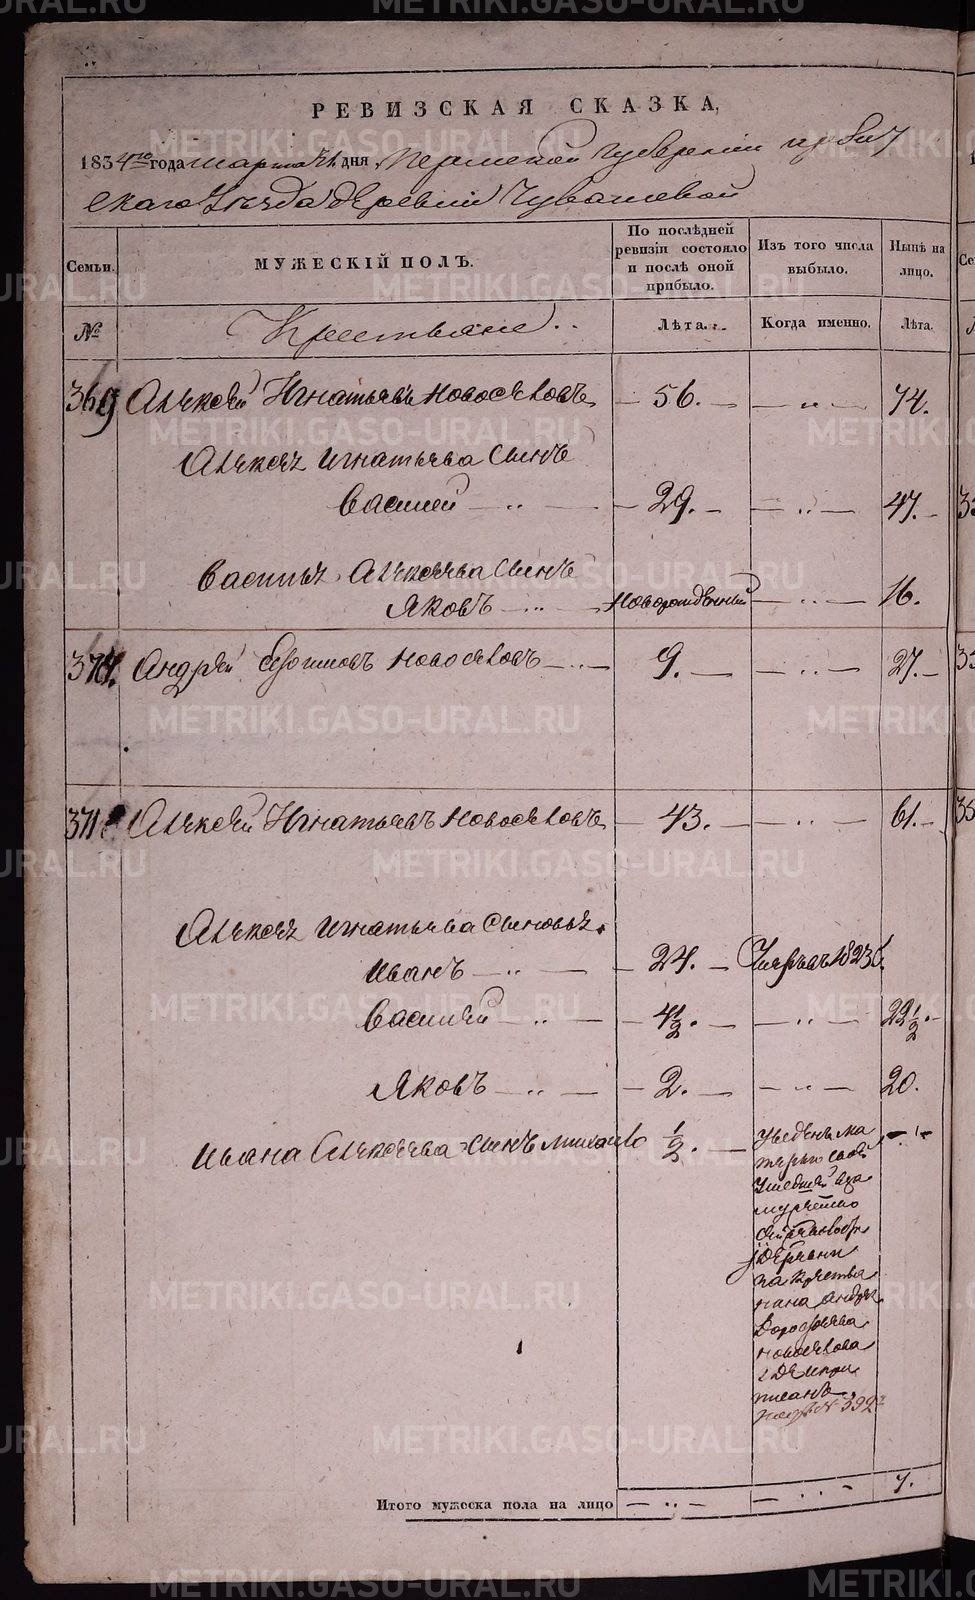 РЕВИЗСКАЯ СКАЗКА,
1834го года марта 21 дня, Пермской Губернии Ирбит
скаго Уезда деревни Чувашевой
Семьи. МУЖЕСКІЙ ПОЛЪ. По послѣдней ревизіи состояло и послѣ оной прибыло. Изъ того числа выбыло. Нынѣ на лицо.
№ Крестьяне.. Лѣта. Когда именно. Лѣта.
369 Алексѣй Игнатьевъ Новоселовъ — 56. — — „ — 74.
Алексея Игнатьева Сынъ
Василей — „ — — 29. — — „ — 47. —
Василья Алексеева Сынъ
Яковъ — „ — Новорожденный — „ — 16.
Андрей Новоселовъ — „ — 9. — — „ — 27. —
371 Алексѣй Игнатьевъ Новоселовъ — 43. — — „ — 61. —
Алексея Игнатьева Сыновья.
Иванъ — „ — — 24. — Умеръ въ
Василей — „ — — 4½. — — „ — 22½. —
Яковъ — „ — — 2. — — „ — 20.
Ивана Алексеева Сынъ Михайло ½. — — „ —
Уведенъ ма
терью своей
Ушедшей
за Крестья
нина Андрея
Новоселова
где и при
писанъ.
№ 392
7.
Итого мужеска пола на лицо — „ — — „ —
METRIKI.GASO-URAL.RU